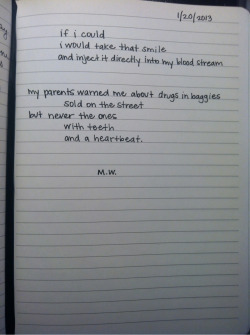 1/20/2013
if i could
i would take that smile
and inject it directly into my blood stream
my parents warned me about drugs in baggies
sold on the street
but never the ones
with teeth
and a heartbeat.
M.W.